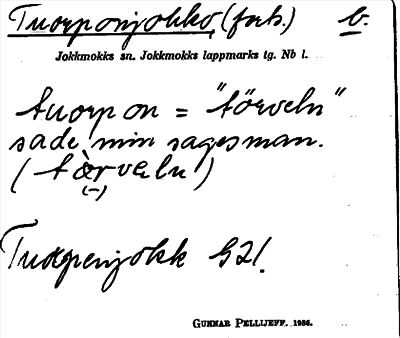 Tuorponjokko, (forts.) b.
Jokkmokks sn. Jokkmokks lappmarks tg. Nb l.
tuorpon = "törveln"
sade min sagesman.
(tœ̀rvεln)
(-)
Tuorpenjokk G21.
GUNNAR PELLIJEFF. 1956.